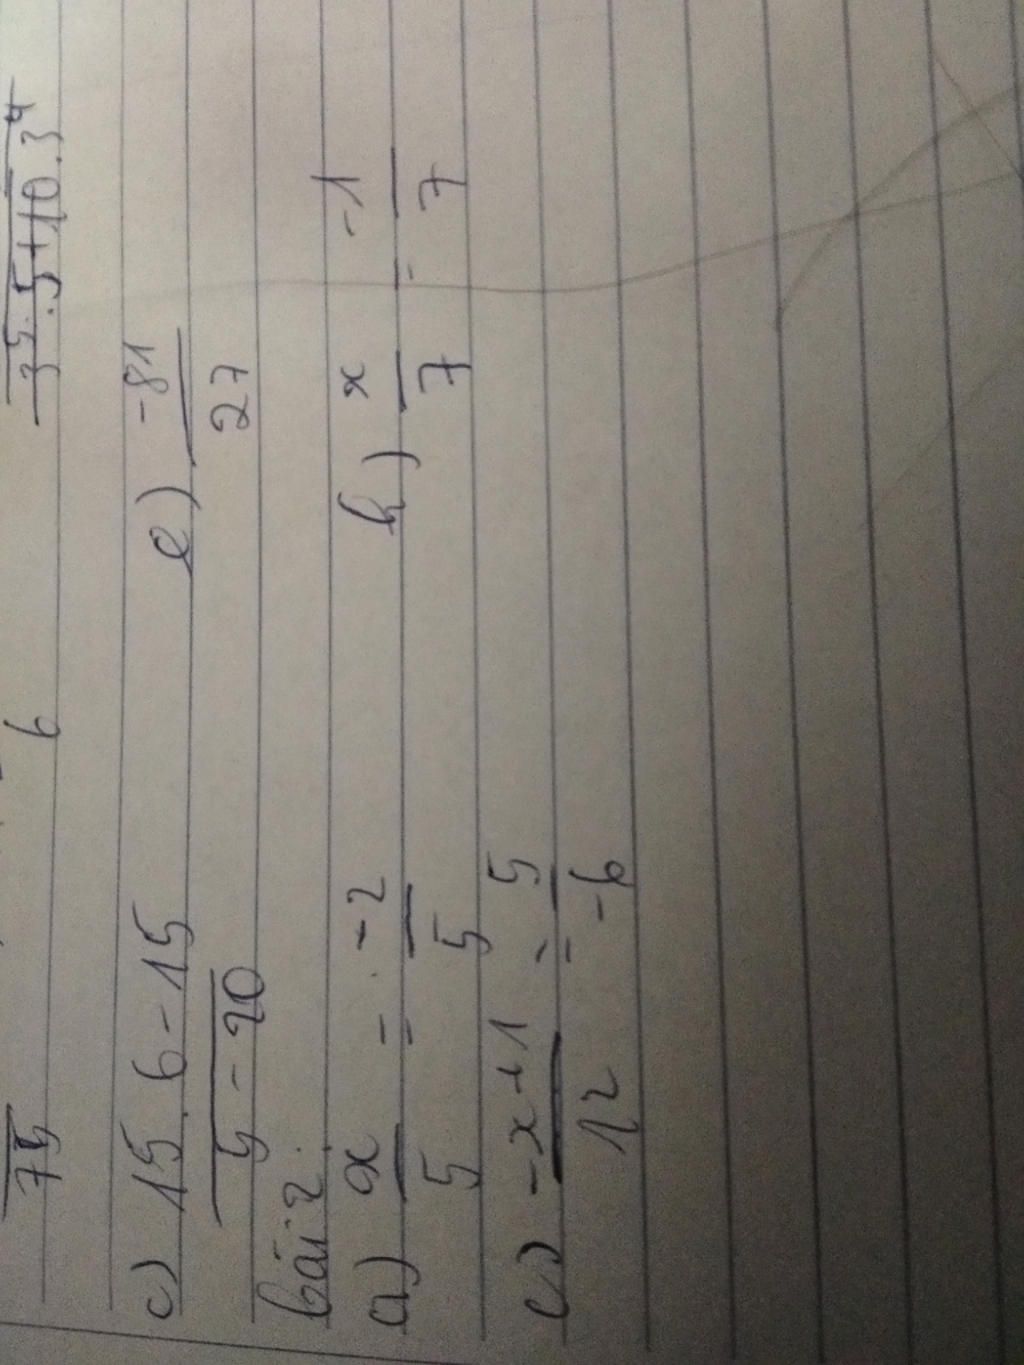 75 6 3⁵.5+10.3⁴
c) 15.6-15 e) -81
5-20 27
bài 2.
a) x/5 = -2/5 b) x/7 = -1/7
c) -x+1/12 = 5/-6